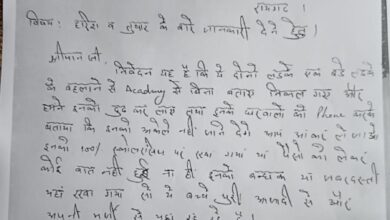 रायगढ़ ।
विषय: हारिस व तुषार के बारे जानकारी देने हेतु ।
श्रीमान जी,
निवेदन यह है कि ये दोनों लड़के एक बड़े लड़के
के बहलाने से Academy से बिना बताए निकल गए और
हमने इनको ढूढ कर लाए तथा इनके घरवालों को Phone करके
बताया कि इनको अकेले नहीं जाने देंगे आप आकर ले जाओ
इनको 100% स्कालरशिप पर रखा गया था पैसों को लेकर
कोई बात नहीं हुई ना ही इनको बन्धक या जबरदस्ती
यहां रखा गया था ये बच्चे पुरी आजादी से और
अपनी मर्जी से यहां रह रहे थे